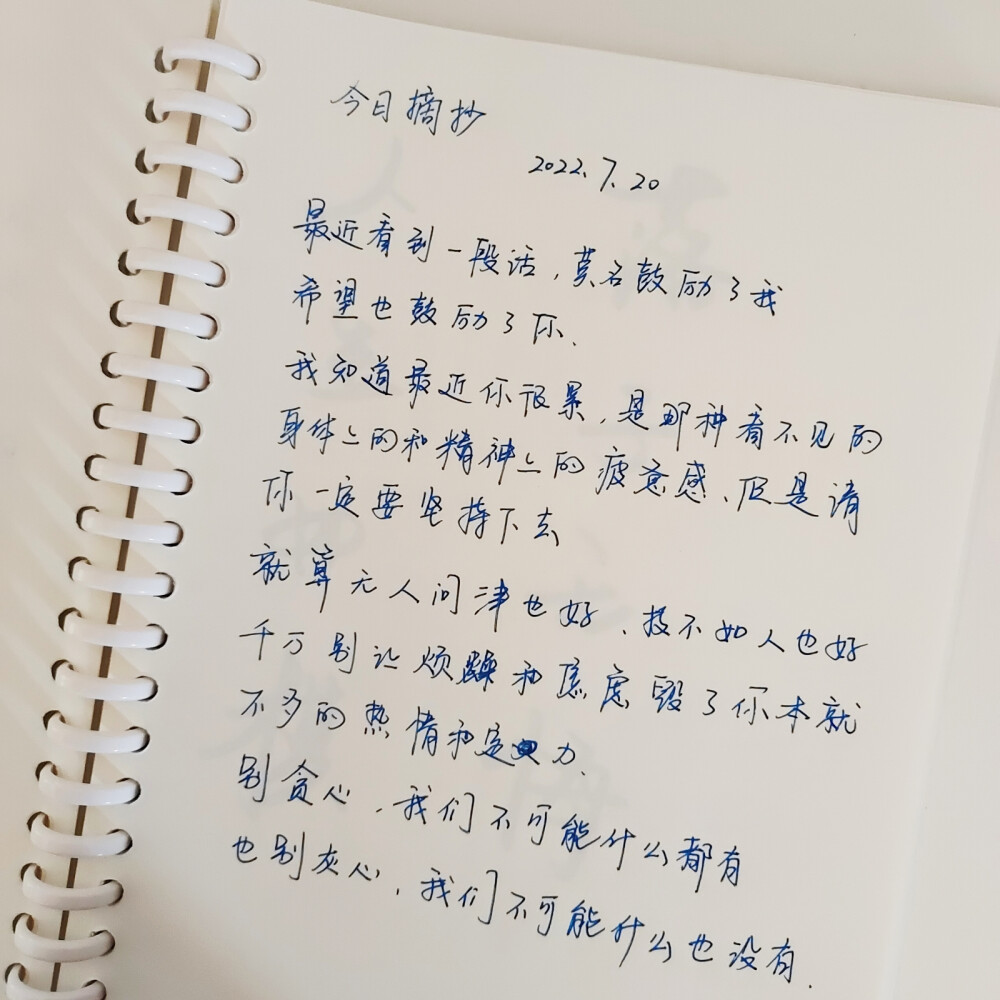 今日摘抄
2022.7.20
最近看到一段话,莫名鼓励了我
希望也鼓励了你.
我知道最近你很累,是那种看不见的
身体上的和精神上的疲惫感、但是请
你一定要坚持下去
就算无人问津也好、技不如人也好
千万别让烦躁和焦虑毁了你本就
不多的热情和定力.
别贪心,我们不可能什么都有
也别灰心,我们不可能什么也没有.